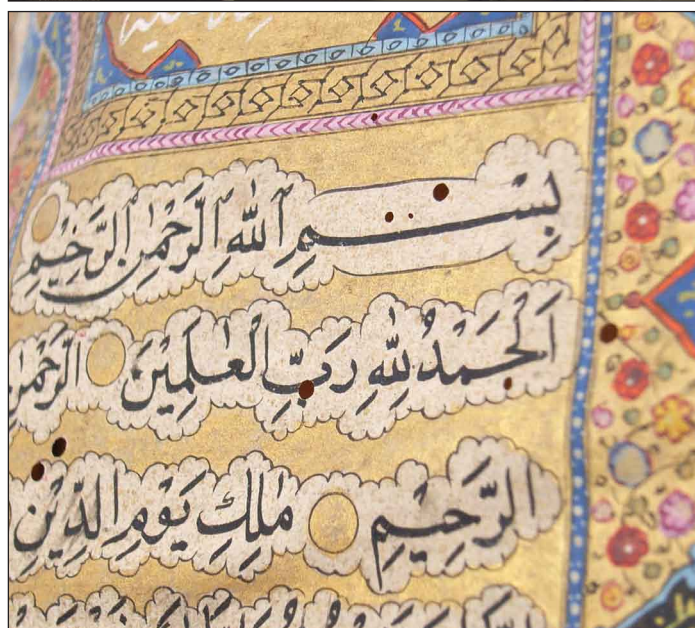 بِسْمِ ٱللَّهِ ٱلرَّحْمٰنِ ٱلرَّحِيْمِ
اَلْحَمْدُ لِلّٰهِ رَبِّ الْعٰلَمِيْنَ الرَّحْمٰنِ
الرَّحِيْمِ مٰلِكِ يَوْمِ الدِّيْنِ